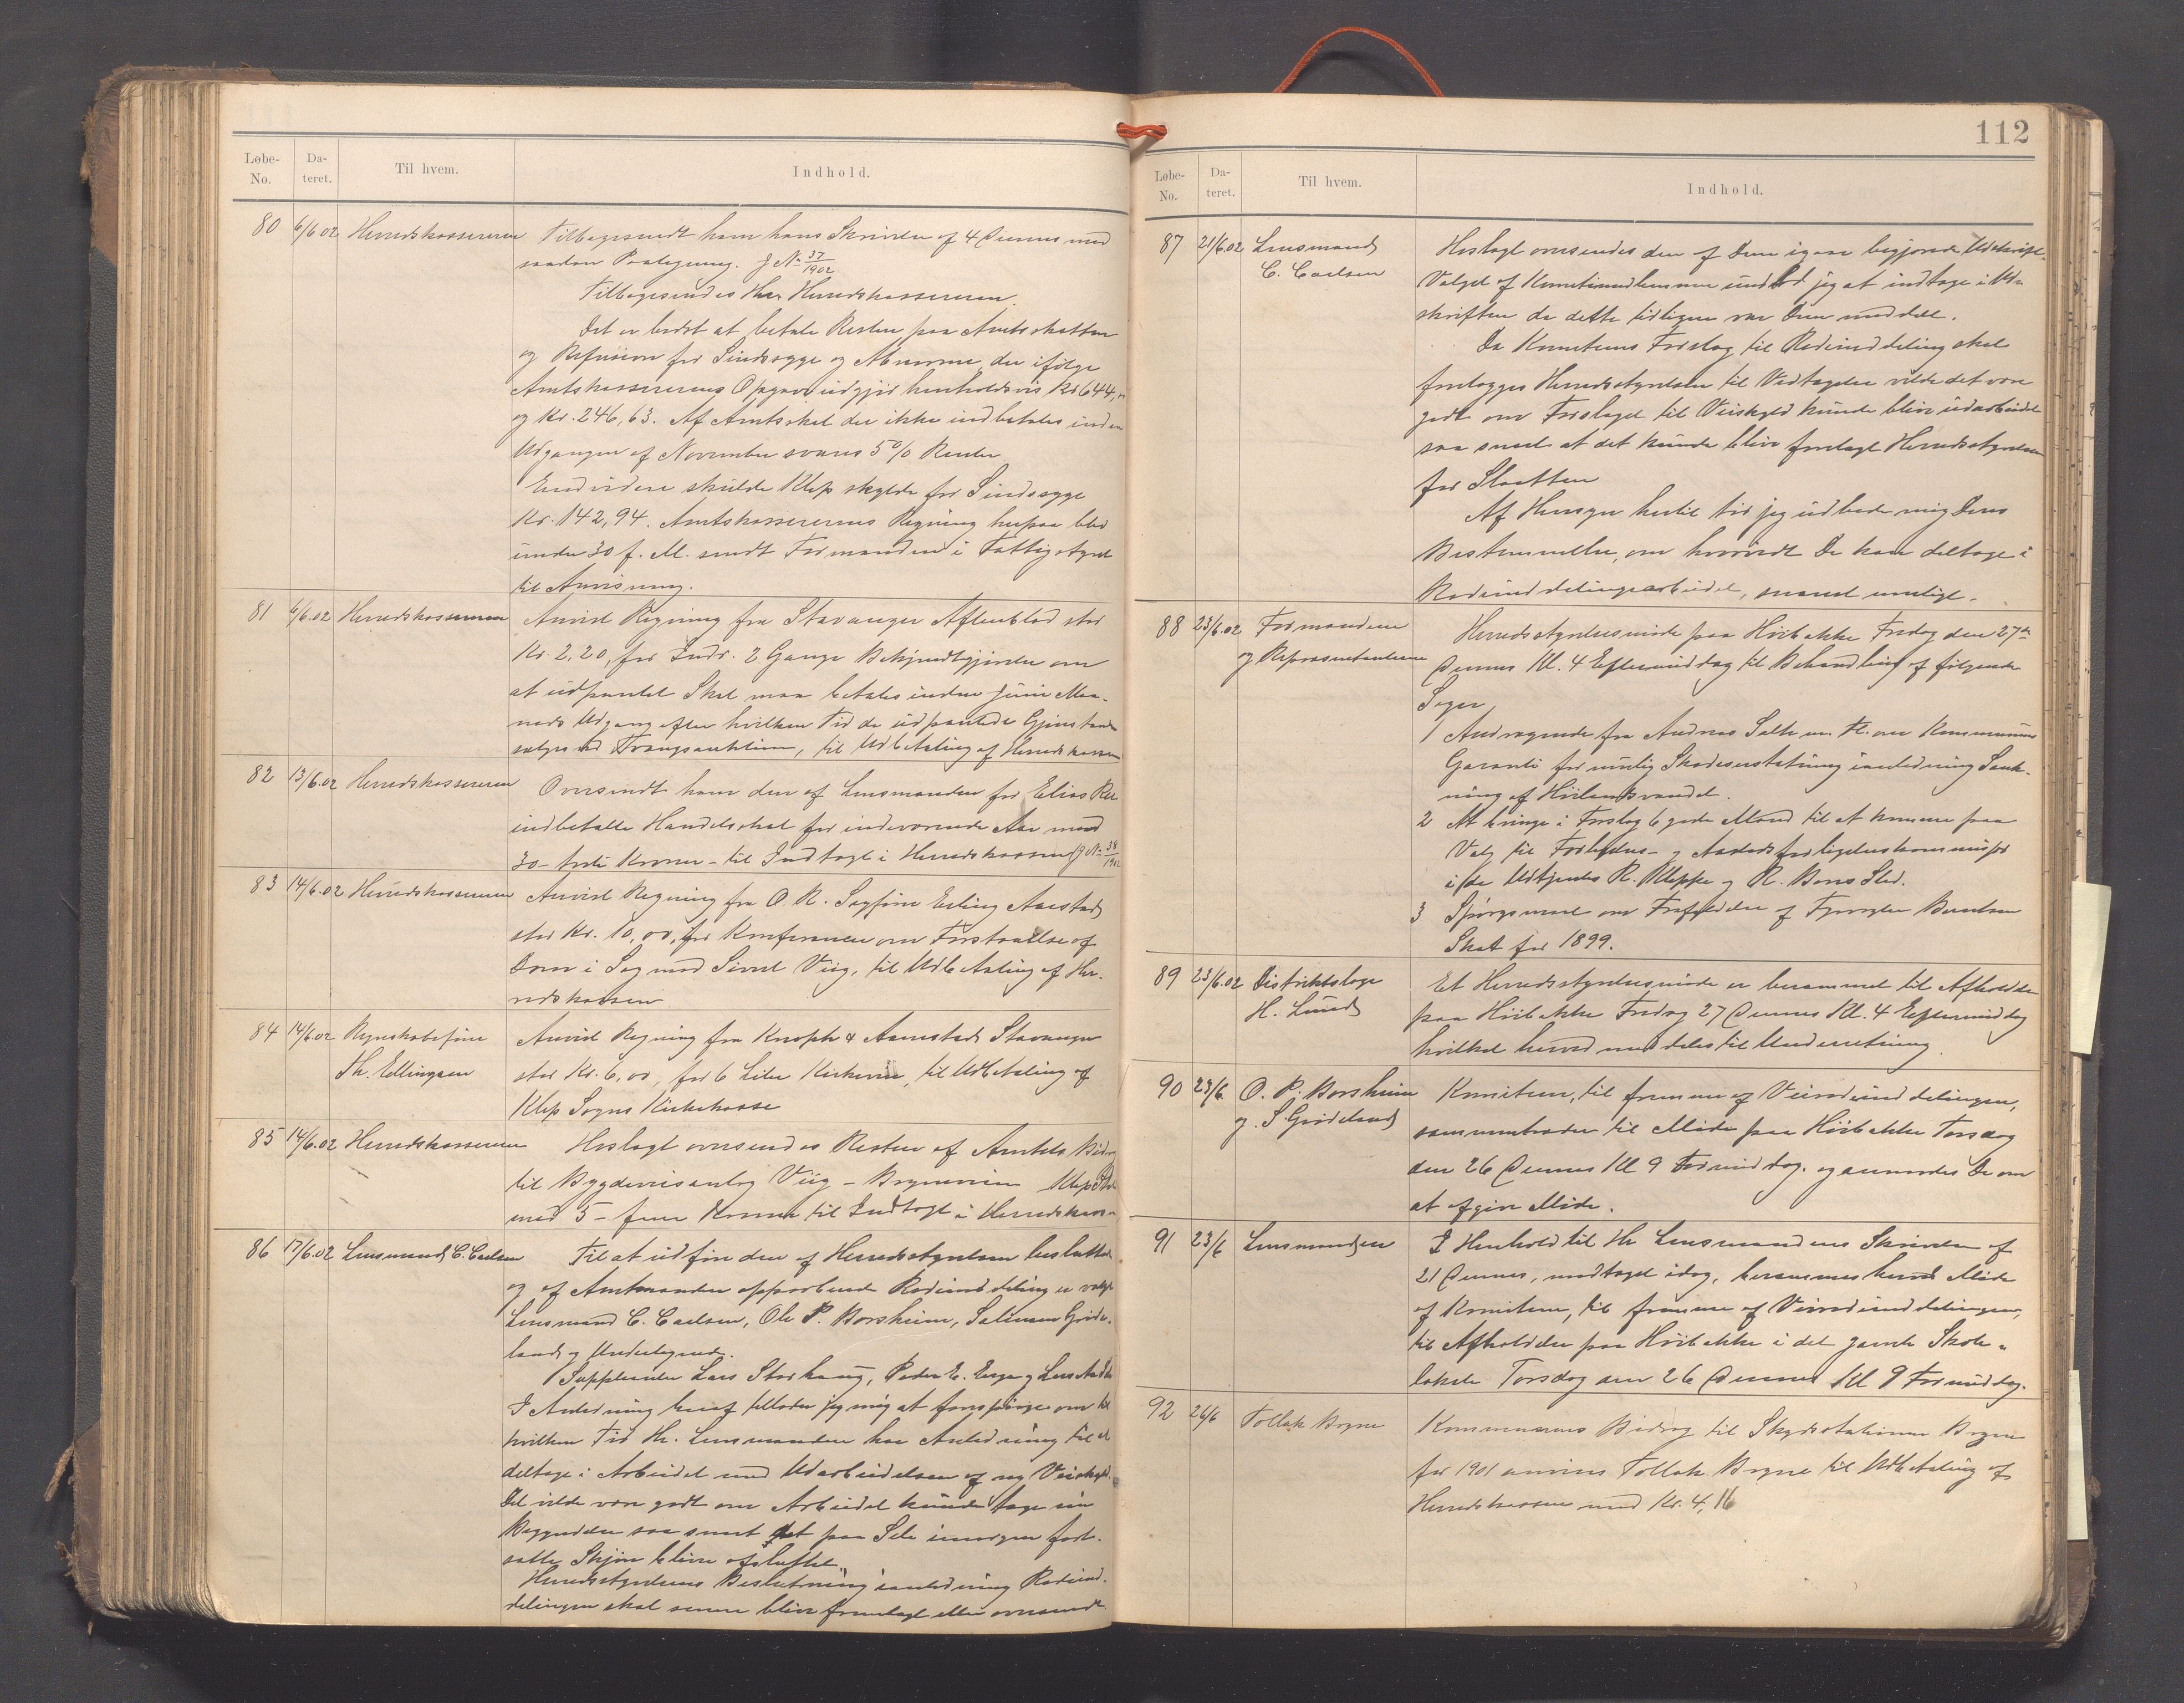 Løbe-No. Da-teret. Til hvem. Indhold.
80 6/6.02 Herredskassereren Tilbagesendt ham hans Skrivelse af 4 Dennes med
saadan Paategning. J No 37/1902
Tilbagesendes Herr Herredskassereren.
Det er bedst at betale Resten paa Amtsskatten
og Refusion for Sindssyge og Abnorme der ifølge
Amtskassererens Opgave udgjør henholdsvis Kr 644,
og Kr. 246,63. Af Amtsskat der ikke indbetales inden
Udgangen af November svares 5% Renter
Endvidere skulde Klep skylde for Sindssyge
Kr. 142,94. Amtskassererens Regning herpaa blev
under 30 f. M. sendt Formanden i Fattigstyret
til Anvisning.
81 6/6.02 Herredskassereren Anvist Regning fra Stavanger Aftenblad stor
Kr. 2,20, for Indr. 2 Gange Bekjendtgjørelse om
at udpantet Skat maa betales inden Juni Maa-
neds Udgang efter hvilken Tid de udpantede Gjenstande
sælges ved Tvangsauktion, til Udbetaling af Herredskassen
82 13/6.02 Herredskassereren Oversendt ham den af Lensmanden for Elias Re
indbetalte Handelsskat for indeværende Aar med
30 - treti Kroner - til Indtægt i Herredskassen J No 38/1902
83 14/6.02 Herredskassereren Anvist Regning fra O. R. Sagfører Erling Aarstad
stor Kr. 10,00, for Konference om Forstaaelse af
Dom i Sag mod Sivert Viig, til Udbetaling af Her-
redskassen
84 14/6.02 Regnskabsfører
Th. Ellingsen Anvist Regning fra Knoph & Aanestad Stavanger
stor Kr. 6,00, for 6 Liter Kirkevin, til Udbetaling af
Klep Sogns Kirkekasse
85 14/6.02 Herredskassereren Hoslagt oversendes Resten af Amtets Bidrag
til Bygdeveisanlæg Viig - Bryneveien Klep St
med 5 - fem Kroner til Indtægt i Herredskass-
86 17/6.02 Lensmand C. Carlsen Til at udføre den af Herredsstyrelsen besluttede
og af Amtmanden approberede Rodeinddeling er valgt
Lensmand C. Carlsen, Ole P. Borsheim, Salomon Grude-
land og Undertegnede.
Suppleanter Lars Storhaug, Peder E. Erga og
I Anledning heraf tillader jeg mig at forespørge om til
hvilken Tid Hr. Lensmanden har Anledning til at
deltage i Arbeidet med Udarbeidelsen af ny Veiskyld.
Det vilde være godt om Arbeidet kunde tage sin
Begyndelse saa snart det paa Sele imorgen fort-
satte Skjøn bliver afsluttet.
Herredsstyrelsens Beslutning i anledning Rodeind-
delingen skal senere blive fremlagt eller oversendt
112
Løbe-No. Da-teret. Til hvem. Indhold.
87 21/6.02 Lensmand
C. Carlsen Hoslagt oversendes den af Dem igaar begjærede Udskrift.
Valget af Komitemedlemmer undlod jeg at indtage i Ud-
skriften da dette tidligere var Dem meddelt.
Da Komiteens Forslag til Rodeinddeling skal
forelægges Herredsstyrelsen til Vedtagelse vilde det være
godt om Forslaget til Veiskyld kunde blive udarbeidet
saa snart at det kunde blive forelagt Herredsstyrelsen
før Slaatten
Af Hensyn hertil tør jeg udbede mig Deres
Bestemmelse, om hvorvidt De kan deltage i
Rodeinddelingsarbeidet, snarest muligt.
88 23/6.02 Formændene
og Repræsentanterne Herredsstyrelsesmøde paa Høibakke Fredag den 27de
Dennes Kl. 4 Eftermiddag til Behandling af følgende
Sager
1 Andragende fra Andreas Salte m. fl. om Kommunens
Garanti for mulig Skadeserstatning i anledning Sænk-
ning af Hørlandsvandet.
2 At bringe i Forslag 6 gode Mænd til at komme paa
Valg til Forligelses- og Aastedsforligelseskommissær
i fra Udtjente R. Kleppe og R. Bores Sted.
3 Spørgsmaal om Frafaldelse af Berntsen
Skat for 1899.
89 23/6.02 Distriktslæge
H. Lund Et Herredsstyrelsesmøde er berammet til Afholdelse
paa Høibakke Fredag 27 Dennes Kl. 4 Eftermiddag
hvilket herved meddeles til Underretning.
90 23/6 O. P. Borsheim
og S. Grudeland Komiteen, til fremme af Veirodeinddelingen,
sammentræder til Møde paa Høibakke Torsdag
den 26 Dennes Kl 9 Formiddag. og anmodes De om
at afgive Møde.
91 23/6 Lensmanden I Henhold til Hr Lensmandens Skrivelse af
21 Dennes, modtaget idag, berammes herved Møde
af Komiteen, til fremme af Veirodeinddelingen,
til Afholdelse paa Høibakke i det gamle Skole-
lokale Torsdag den 26 Dennes Kl 9 Formiddag.
92 26/6 Tollak Bryne Kommunens Bidrag til Skydsstationen Bryne
for 1901 anvises Tollak Bryne til Udbetaling af
Herredskassen med Kr. 4,16